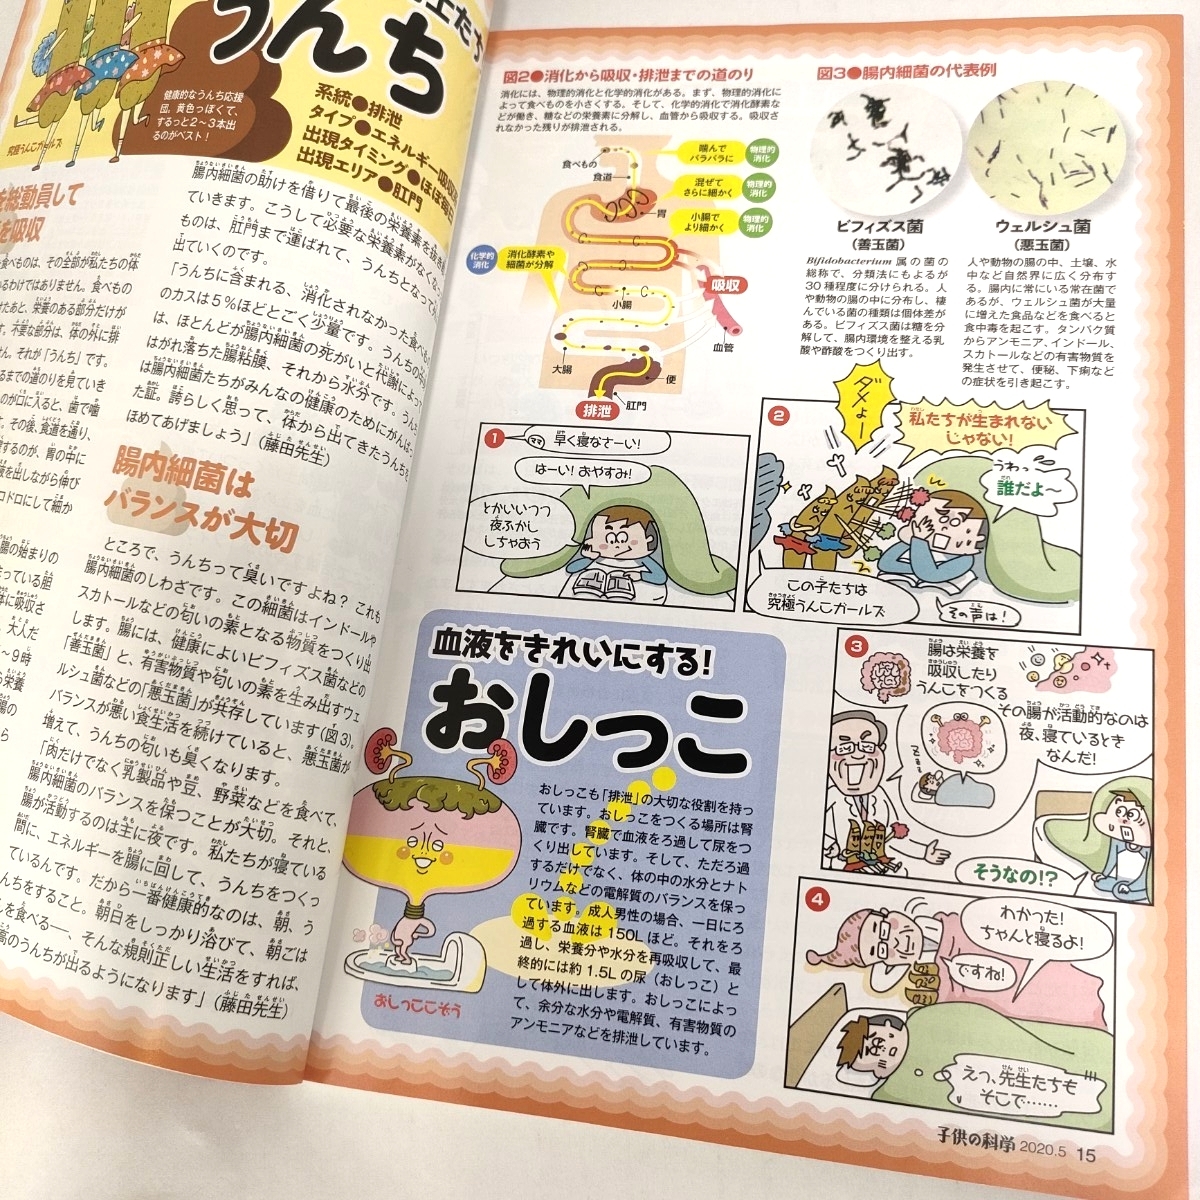 うんち
健康的なうんち応援
団。黄色っぽくて、
するっと2〜3本出
るのがベスト!
究極うんこガールズ
系統●排泄
タイプ●エネルギー吸収
出現タイミング●ほぼ毎日
出現エリア●肛門
を総動員して
を吸収
食べものは、その全部が私たちの体
るわけではありません。食べもの
けたあと、栄養のある部分だけが
す。不要な部分は、体の外に排
せん。それが「うんち」です。
るまでの道のりを見ていき
のが口に入ると、歯で噛
す。その後、食道を通り、
するのが、胃の中に
液を出しながら伸び
ロドロにして細か
腸の始まりの
大人だ
腸内細菌の助けを借りて最後の栄養素を抜き
ていきます。こうして必要な栄養素がなくな
ものは、肛門まで運ばれて、うんちとなって
出ていくのです。
「うんちに含まれる、消化されなかった食べも
のカスは5%ほどとごく少量です。うんちの
は、ほとんどが腸内細菌の死がいと代謝によ
はがれ落ちた腸粘膜、それから水分です。うん
は腸内細菌たちがみんなの健康のためにがんば
た証。誇らしく思って、体から出てきたうんちを
ほめてあげましょう」(藤田先生)
腸内細菌は
バランスが大切
ところで、うんちって臭いですよね? これも
腸内細菌のしわざです。この細菌はインドールや
スカトールなどの匂いの素となる物質をつくり出
します。腸には、健康によいビフィズス菌などの
「善玉菌」と、有害物質や匂いの素を生み出すウェ
ルシュ菌などの「悪玉菌」が共存しています(図3)。
バランスが悪い食生活を続けていると、悪玉菌が
増えて、うんちの匂いも臭くなります。
「肉だけでなく乳製品や豆、野菜などを食べて、
腸内細菌のバランスを保つことが大切。それと、
腸が活動するのは主に夜です。私たちが寝ている
間に、エネルギーを腸に回して、うんちをつくっ
ているんです。だから一番健康的なのは、朝、う
んちをすること。朝日をしっかり浴びて、朝ごは
んを食べる―、そんな規則正しい生活をすれば、
高のうんちが出るようになります」(藤田先生)
図2●消化から吸収・排泄までの道のり
消化には、物理的消化と化学的消化がある。まず、物理的消化に
よって食べものを小さくする。そして、化学的消化で消化酵素な
どが働き、糖などの栄養素に分解し、血管から吸収する。吸収さ
れなかった残りが排泄される。
食べもの
食道
胃
噛んで
バラバラに
物理的
消化
混ぜて
さらに細かく
物理的
消化
小腸で
より細かく
物理的
消化
化学的
消化
消化酵素や
細菌が分解
小腸
吸収
血管
大腸
便
排泄
肛門
図3●腸内細菌の代表例
ビフィズス菌
(善玉菌)
Bifidobacterium 属の菌の
総称で、分類法にもよるが
30種程度に分けられる。人
や動物の腸の中に分布し、棲
んでいる菌の種類は個体差が
ある。ビフィズス菌は糖を分
解して、腸内環境を整える乳
酸や酢酸をつくり出す。
ウェルシュ菌
(悪玉菌)
人や動物の腸の中、土壌、水
中など自然界に広く分布す
る。腸内に常にいる常在菌で
あるが、ウェルシュ菌が大量
に増えた食品などを食べると
食中毒を起こす。タンパク質
からアンモニア、インドール、
スカトールなどの有害物質を
発生させて、便秘、下痢など
の症状を引き起こす。
1
ママ
早く寝なさーい!
はーい! おやすみ!
とかいいつつ
夜ふかし
しちゃおう
2
ダメよー
私たちが生まれない
じゃない!
うわっ
誰だよ〜
この子たちは
究極うんこガールズ
その声は!
3
腸は栄養を
吸収したり
うんこをつくる
その腸が活動的なのは
夜、寝ているとき
なんだ!
そうなの!?
4
わかった!
ちゃんと寝るよ!
ですね!
えっ、先生たちも
そこで……
血液をきれいにする!
おしっこ
おしっこも「排泄」の大切な役割を持っ
ています。おしっこをつくる場所は腎
臓です。腎臓で血液をろ過して尿をつ
くり出しています。そして、ただろ過
するだけでなく、体の中の水分とナト
リウムなどの電解質のバランスを保っ
ています。成人男性の場合、一日にろ
過する血液は150Lほど。それをろ
過し、栄養分や水分を再吸収して、最
終的には約1.5Lの尿(おしっこ)と
して体外に出します。おしっこによっ
て、余分な水分や電解質、有害物質の
アンモニアなどを排泄しています。
おしっここぞう
子供の科学 2020.5 15